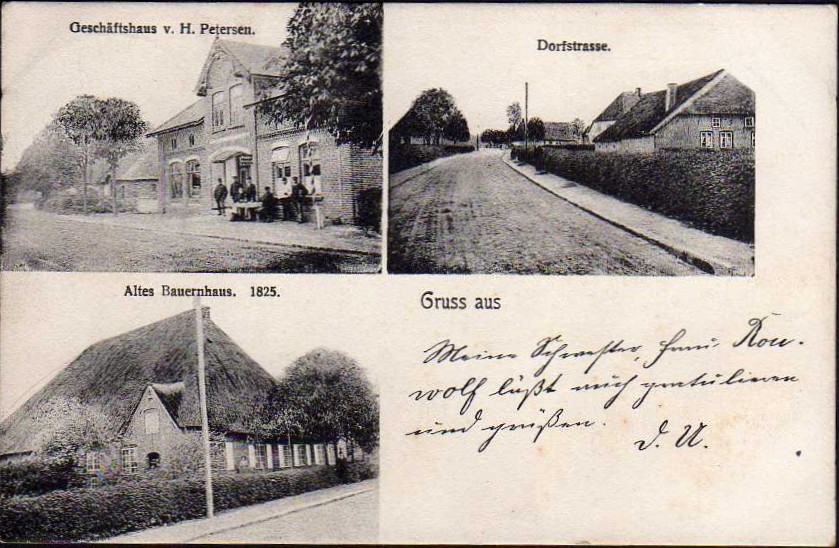 Geschäftshaus v. H. Petersen.
Dorfstrasse.
Altes Bauernhaus. 1825.
Gruss aus
Meine Schwester, Frau
wolf läßt auch gratulieren
und grüßen.
d. U.